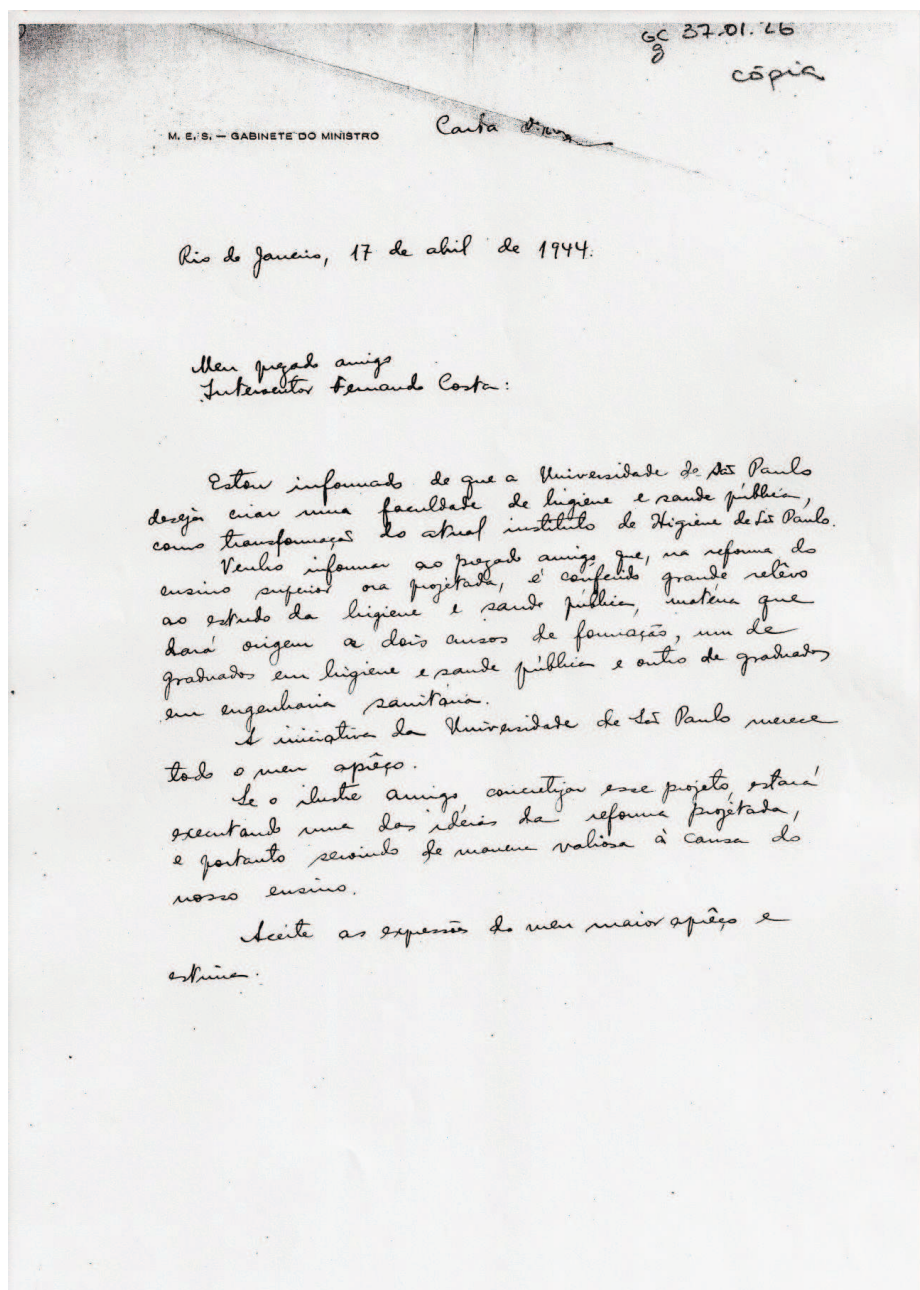 GC 37.01.26
g
cópia
M. E. S. — GABINETE DO MINISTRO
Carta
Rio de Janeiro, 17 de abril de 1944.
Meu prezado amigo
Interventor Fernando Costa:
Estou informado de que a Universidade de São Paulo
deseja criar uma faculdade de higiene e saude pública,
como transformação do atual instituto de Higiene de São Paulo.
Venho informar ao prezado amigo que, na reforma do
ensino superior ora projetada, é conferido grande relêvo
ao estudo da higiene e saude pública, matéria que
dará origem a dois cursos de formação, um de
graduados em higiene e saude pública e outro de graduados
em engenharia sanitária.
A iniciativa da Universidade de São Paulo merece
todo o meu aprêço.
Se o ilustre amigo concretizar esse projeto, estará
executando uma das idéias da reforma projetada,
e portanto servindo de maneira valiosa à causa do
nosso ensino.
Aceite as expressões do meu maior aprêço e
estima.